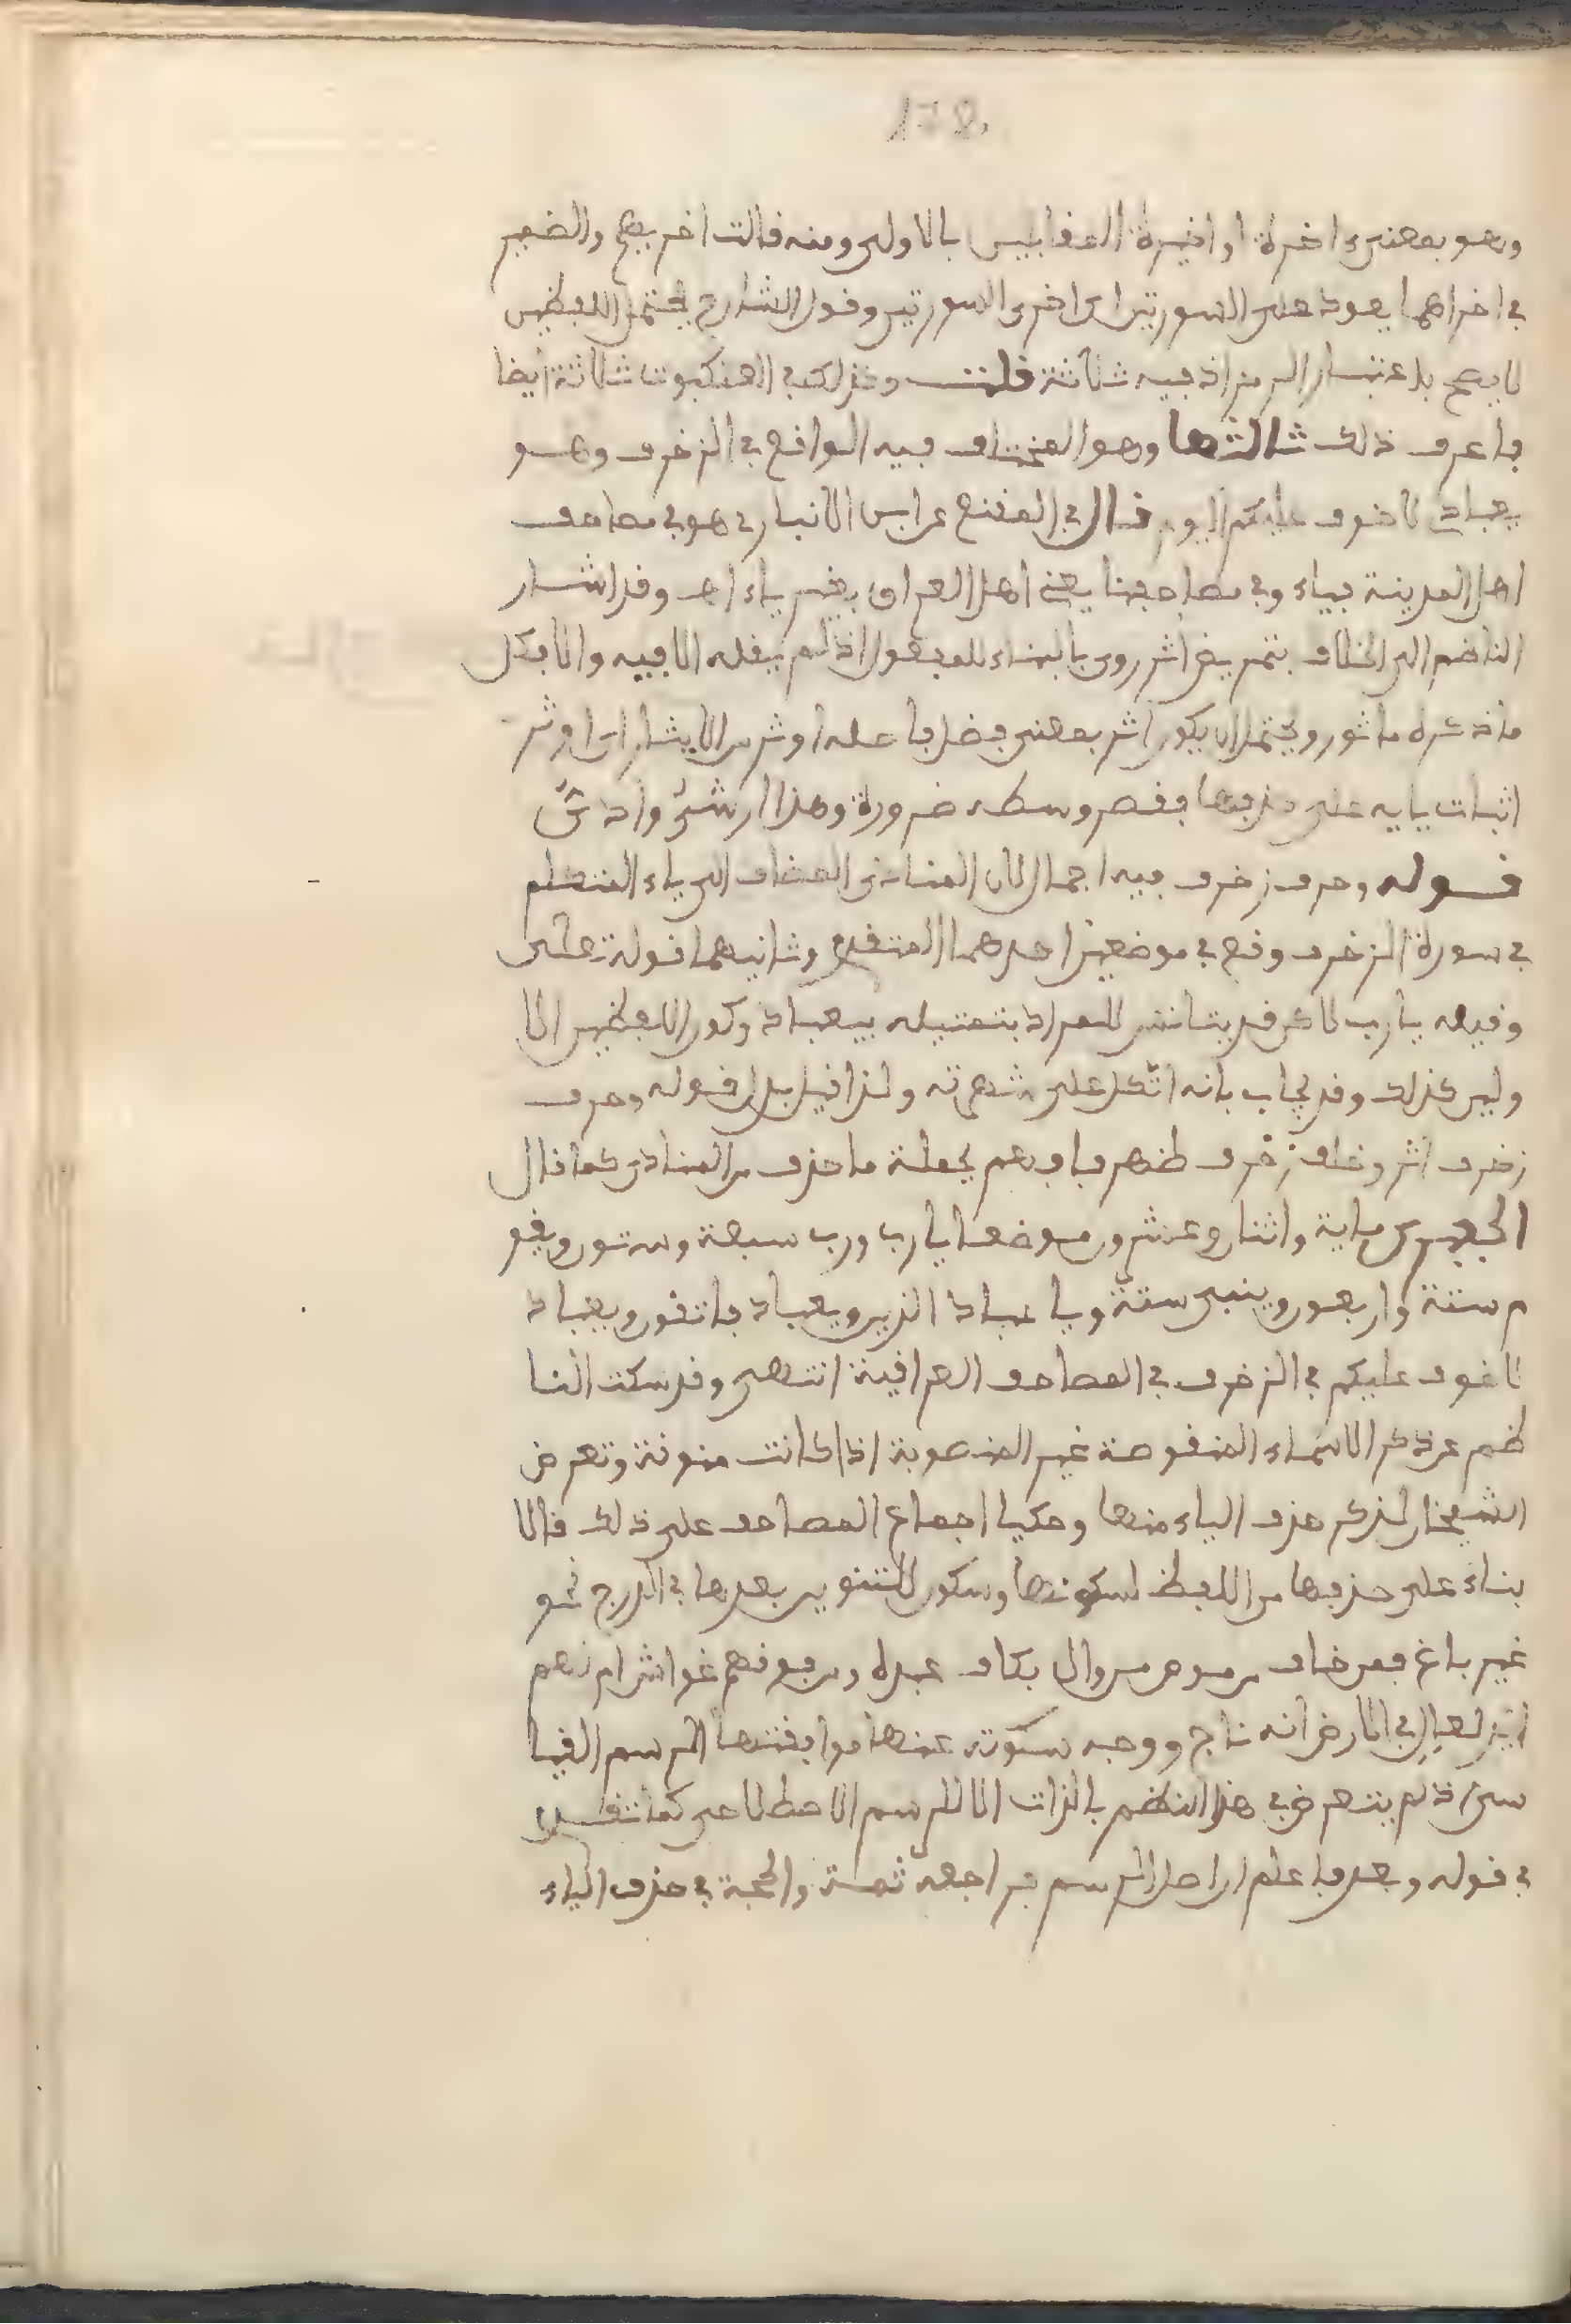 178
وهو بمعنى اخرة او اخيرة المقابليس بالاولى ومنه قالت اخريهم والضمير
في اخراهما يعود على السورتين اى اخرى السورتين وقول الشارح يحتمل اللفظين
لا يصح باعتبار الزمر اذ فيه ثلاثة قلت وكذلك في العنكبوت ثلاثة ايضا
فاعرف ذلك ثالثها وهو المختلف فيه الواقع في الزخرف وهو
يعباد لا خوف عليكم اليوم قال في المقنع عن ابن الانبارى هو في مصاحف
اهل المدينة بياء وفي مصاحفنا يعني اهل العراق بغير ياء اهـ وقد اشار
الناظم الى الخلاف بتمريض اثر روى بالبناء للمفعول اذ لم يقله الا فيه والا فكل
ما ذكره ماثور ويحتمل ان يكون اثر بمعنى فضل فاعله اوثر من الايثار اى اوثر
اثبات يايه على حذفها فقصر وسطه ضرورة وهذا ارشق وادق
قوله وحرف زخرف فيه اجمال لان المنادى المضاف الى ياء المتكلم
في سورة الزخرف وقع في موضعين احدهما المتقدم وثانيهما قوله تعلى
وقيله يارب لاكن قد يتانس للمراد بتمثيله بيعباد وكون اللفظين الا
وليين كذلك وقد يجاب بانه اتكل على شهرته ولذا قيل بدل قوله وحرف
زخرف اثر وخلف زخرف ظهر فافهم بجملة ما حذف من المنادى كما قال
الجعبرى ماية واثنان وعشرون موضعا يارب ورب سبعة وستون ويقو
م ستة واربعون ويبنى ستة ويا عباد الذين ويعباد فاتقون ويعباد
لا خوف عليكم في الزخرف في المصاحف العراقية انتهى وقد سكت النا
ظم عن ذكر الاسماء المنقوصة غير المنصوبة اذا كانت منونة وتعرض
الشيخان لذكر حذف الياء منها وحكيا اجماع المصاحف على ذلك قالا
بناء على حذفها من اللفظ لسكونها وسكون التنوين بعدها في الدرج نحو
غير باغ فمن خاف من موص من وال بكاف عبده ومن فوقهم غواش ام لهم
ايد لعال في الارض انه ناج ووجه سكوته عنها موافقتها الرسم القيا
سى اذ لم يتعرض في هذا النظم بالذات الا للرسم الاصطلاحى كما تقدم
في قوله وبعد فاعلم ان اصل الرسم من اجعه ثمة والحجة في حذف الياء